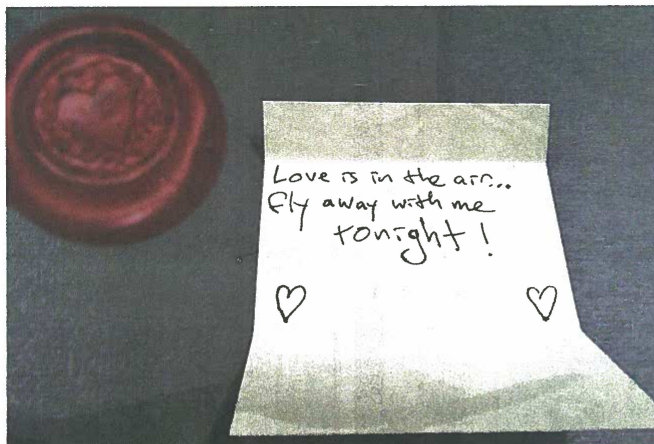 Love is in the air...
fly away with me
tonight!